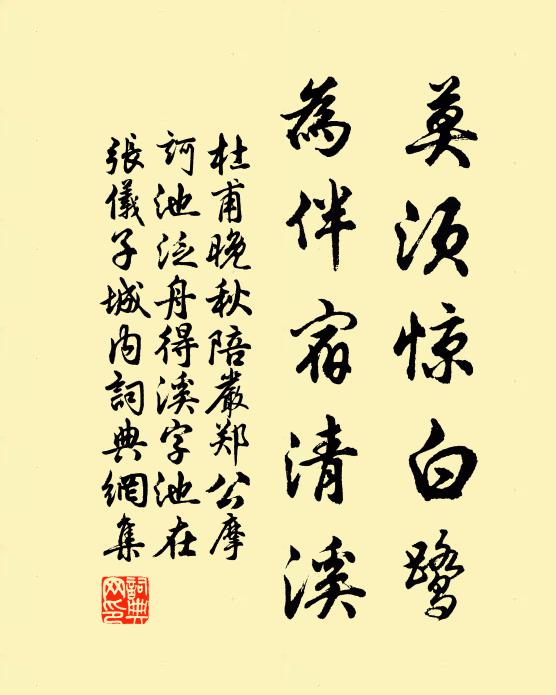 莫须惊白鹭
為伴宿清溪
杜甫晚秋陪嚴郑公摩
訶池泛舟得溪字池在
張儀子城内詞典網集
詞典
网印